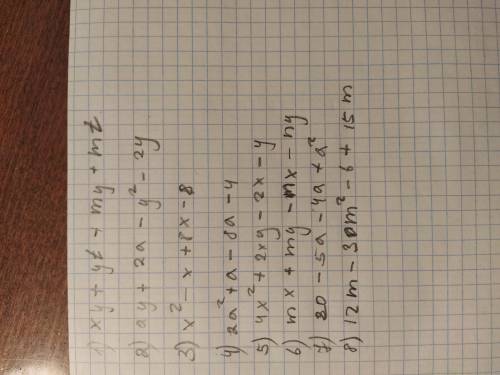 1) xy + yz + my + mz
2) ay + 2a - y² - 2y
3) x² - x + 8x - 8
4) 2a² + a - 8a - 4
5) 4x² + 2xy - 2x - y
6) mx + my - nx - ny
7) 20 - 5a - 4a + a²
8) 12m - 30m² - 6 + 15m